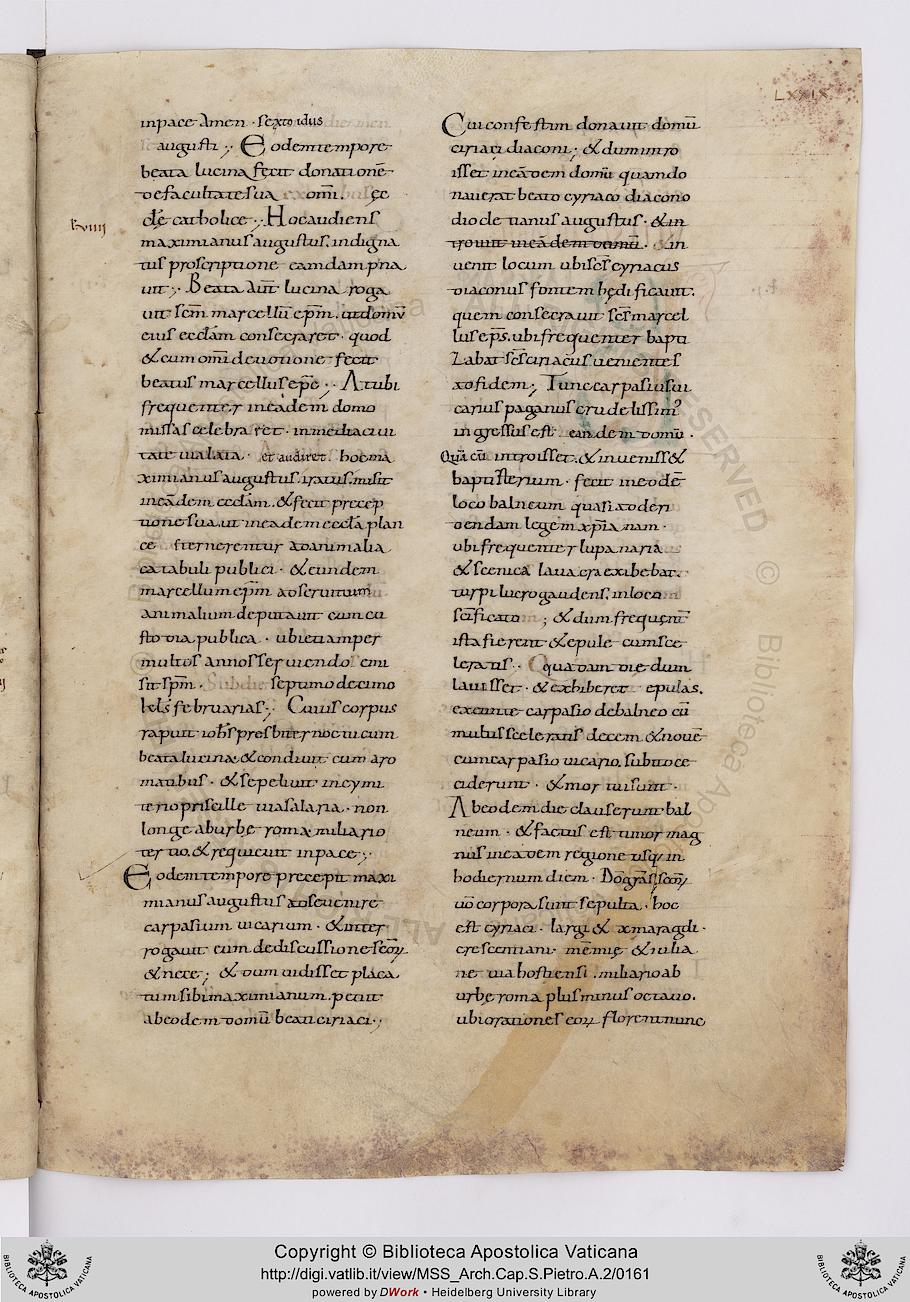 LXXIX
inpace amen · sexto idus
augusti ;, Eodem tempore
beata lucina fecit donationē
defacultate sua omī. sc̄e
ecclę catholice ;, Hoc audiens
lxviiii
maximianus augustus. indigna
tus proscriptione eam dampna
uit ;, Beata aūt lucina roga
uit sc̄m marcellū ep̄m. ut domū
eius ecclam consecraret · quod
& cum omī deuotione fecit
beatus marcellus ep̄c ;, At ubi
frequenter ineadem domo
missas celebraret · in media ciui
tate uia lata · et audiret. hoc ma
ximianus augustus. iratus. misit
ineādem ecclam. & fecit precep
tione sua. ut ineadem eccla plan
ce sternerentur ad animalia
catabuli publici · & eundem
marcellum ep̄m ad seruitium
animalium deputauit cum cu
stodia publica · ubi etiam per
multos annos seruiendo emi
sit sp̄m · Subdie septimo decimo
kl̄s februarias ;, Cuius corpus
rapuit ioh̄s presbiter noctu cum
beata lucina & condiuit cum aro
matibus · & sepeliuit in cymi
terio priscille uia salaria · non
longe ab urbe roma miliario
tertio. & requieuit inpace ;,
Eodem tempore precepit maxi
mianus augustus adse uenire
carpasium uicarium · & inter
rogauit eum de discussione sc̄oꝝ
& nece ; & dum uidisset placa
tum sibi maximianum. petiit
ab eo dem domū beati ciriaci ;,
Cui confestim donauit domū
ciriaci diaconi ; & dum intro
isset ineādem domū quam do
nauerat beato cyriaco diacono
diocletianus augustus · & in
trouit ineādem domū. & in
uenit locum ubi sc̄s cyriacus
diaconus fontem hędificauit.
quem consecrauit sc̄s marcel
lus ep̄s. ubi frequenter bapti
zabat sc̄s ciriacus uenientes
ad fidem ; Tunc carpasius ui
carius paganus crudelissim9
ingressus est eandem domū ·
Quā cū introisset. & inueniss&
baptisterium · fecit in eodē
loco balneum quasi ad deri
dendam legem xp̄ianam ·
ubi frequenter lupanaria
& scenica lauacra exibebat.
turpi lucro gaudens. in loco
sc̄ificato ; & dum frequent̄
ista fierent & epule cum sce
leratis · Quadam die dum
lauisset · & exhiberet epulas.
exeunte carpasio de balneo cū
multis sceleratis decem & nouē
cum carpasio uicario. subito ce
ciderunt · & mortui sunt ·
Ab eodem die clauserunt bal
neum · & factus est timor mag
nus ineadem regione usq; in
hodiernum diem · Dō gras. sc̄oꝝ
uō corpora sunt sepulta · hoc
est cyriaci · largi & xmaragdi ·
crescentiani mēmię & iulia
ne uia hostiensi . miliario ab
urbe roma plus minus octauo.
ubi orationes eoꝝ florent nunc
Copyright © Biblioteca Apostolica Vaticana
http://digi.vatlib.it/view/MSS_Arch.Cap.S.Pietro.A.2/0161
powered by DWork • Heidelberg University Library
BIBLIOTECA APOSTOLICA VATICANA
BIBLIOTECA APOSTOLICA VATICANA